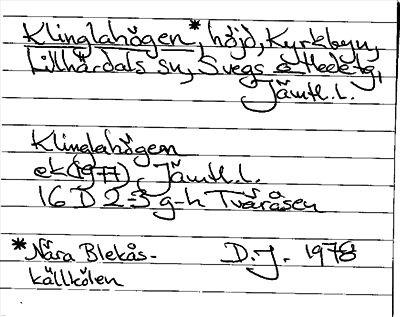 Klinglahögen*, höjd, Kyrkbyn,
Lillhärdals sn, Svegs o Hede tg,
Jämtl. l.
Klinglahögen
ek(1977), Jämtl. l.
16 D 2-3 g-h Tvåråsen
* Nära Blekås-
källkölen
D.J. 1978